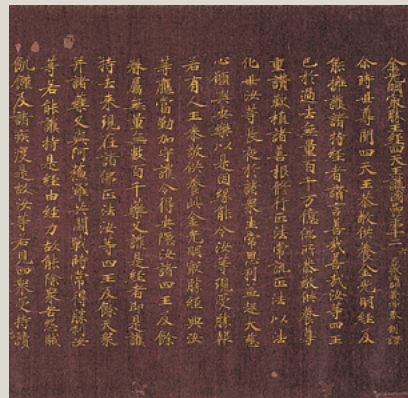 金光明最勝王經四天王護國品第十二 三藏法師義淨奉制譯
尒時世尊聞四天王恭敬供養金光明經及
能擁護諸持經者讚言善哉善哉汝等四王
已於過去無量百千万億佛所恭敬供養尊
重讚歎植諸善根修行正法常說正法以法
化世汝等長夜於諸衆生常思利益起大慈
心願與安樂以是因緣能令汝等現受勝報
若有人王恭敬供養此金光明最勝經典汝
等應當勤加守護令得安隱汝諸四王及餘
眷屬無量無數百千藥叉護是經者即是護
持去來現在諸佛正法汝等四王及餘天衆
并諸藥叉與阿蘇羅共鬪戰時常得勝利汝
等若能護持是經由經力故能除衆苦怨賊
飢饉及諸疾疫是故汝等若見四衆受持讀